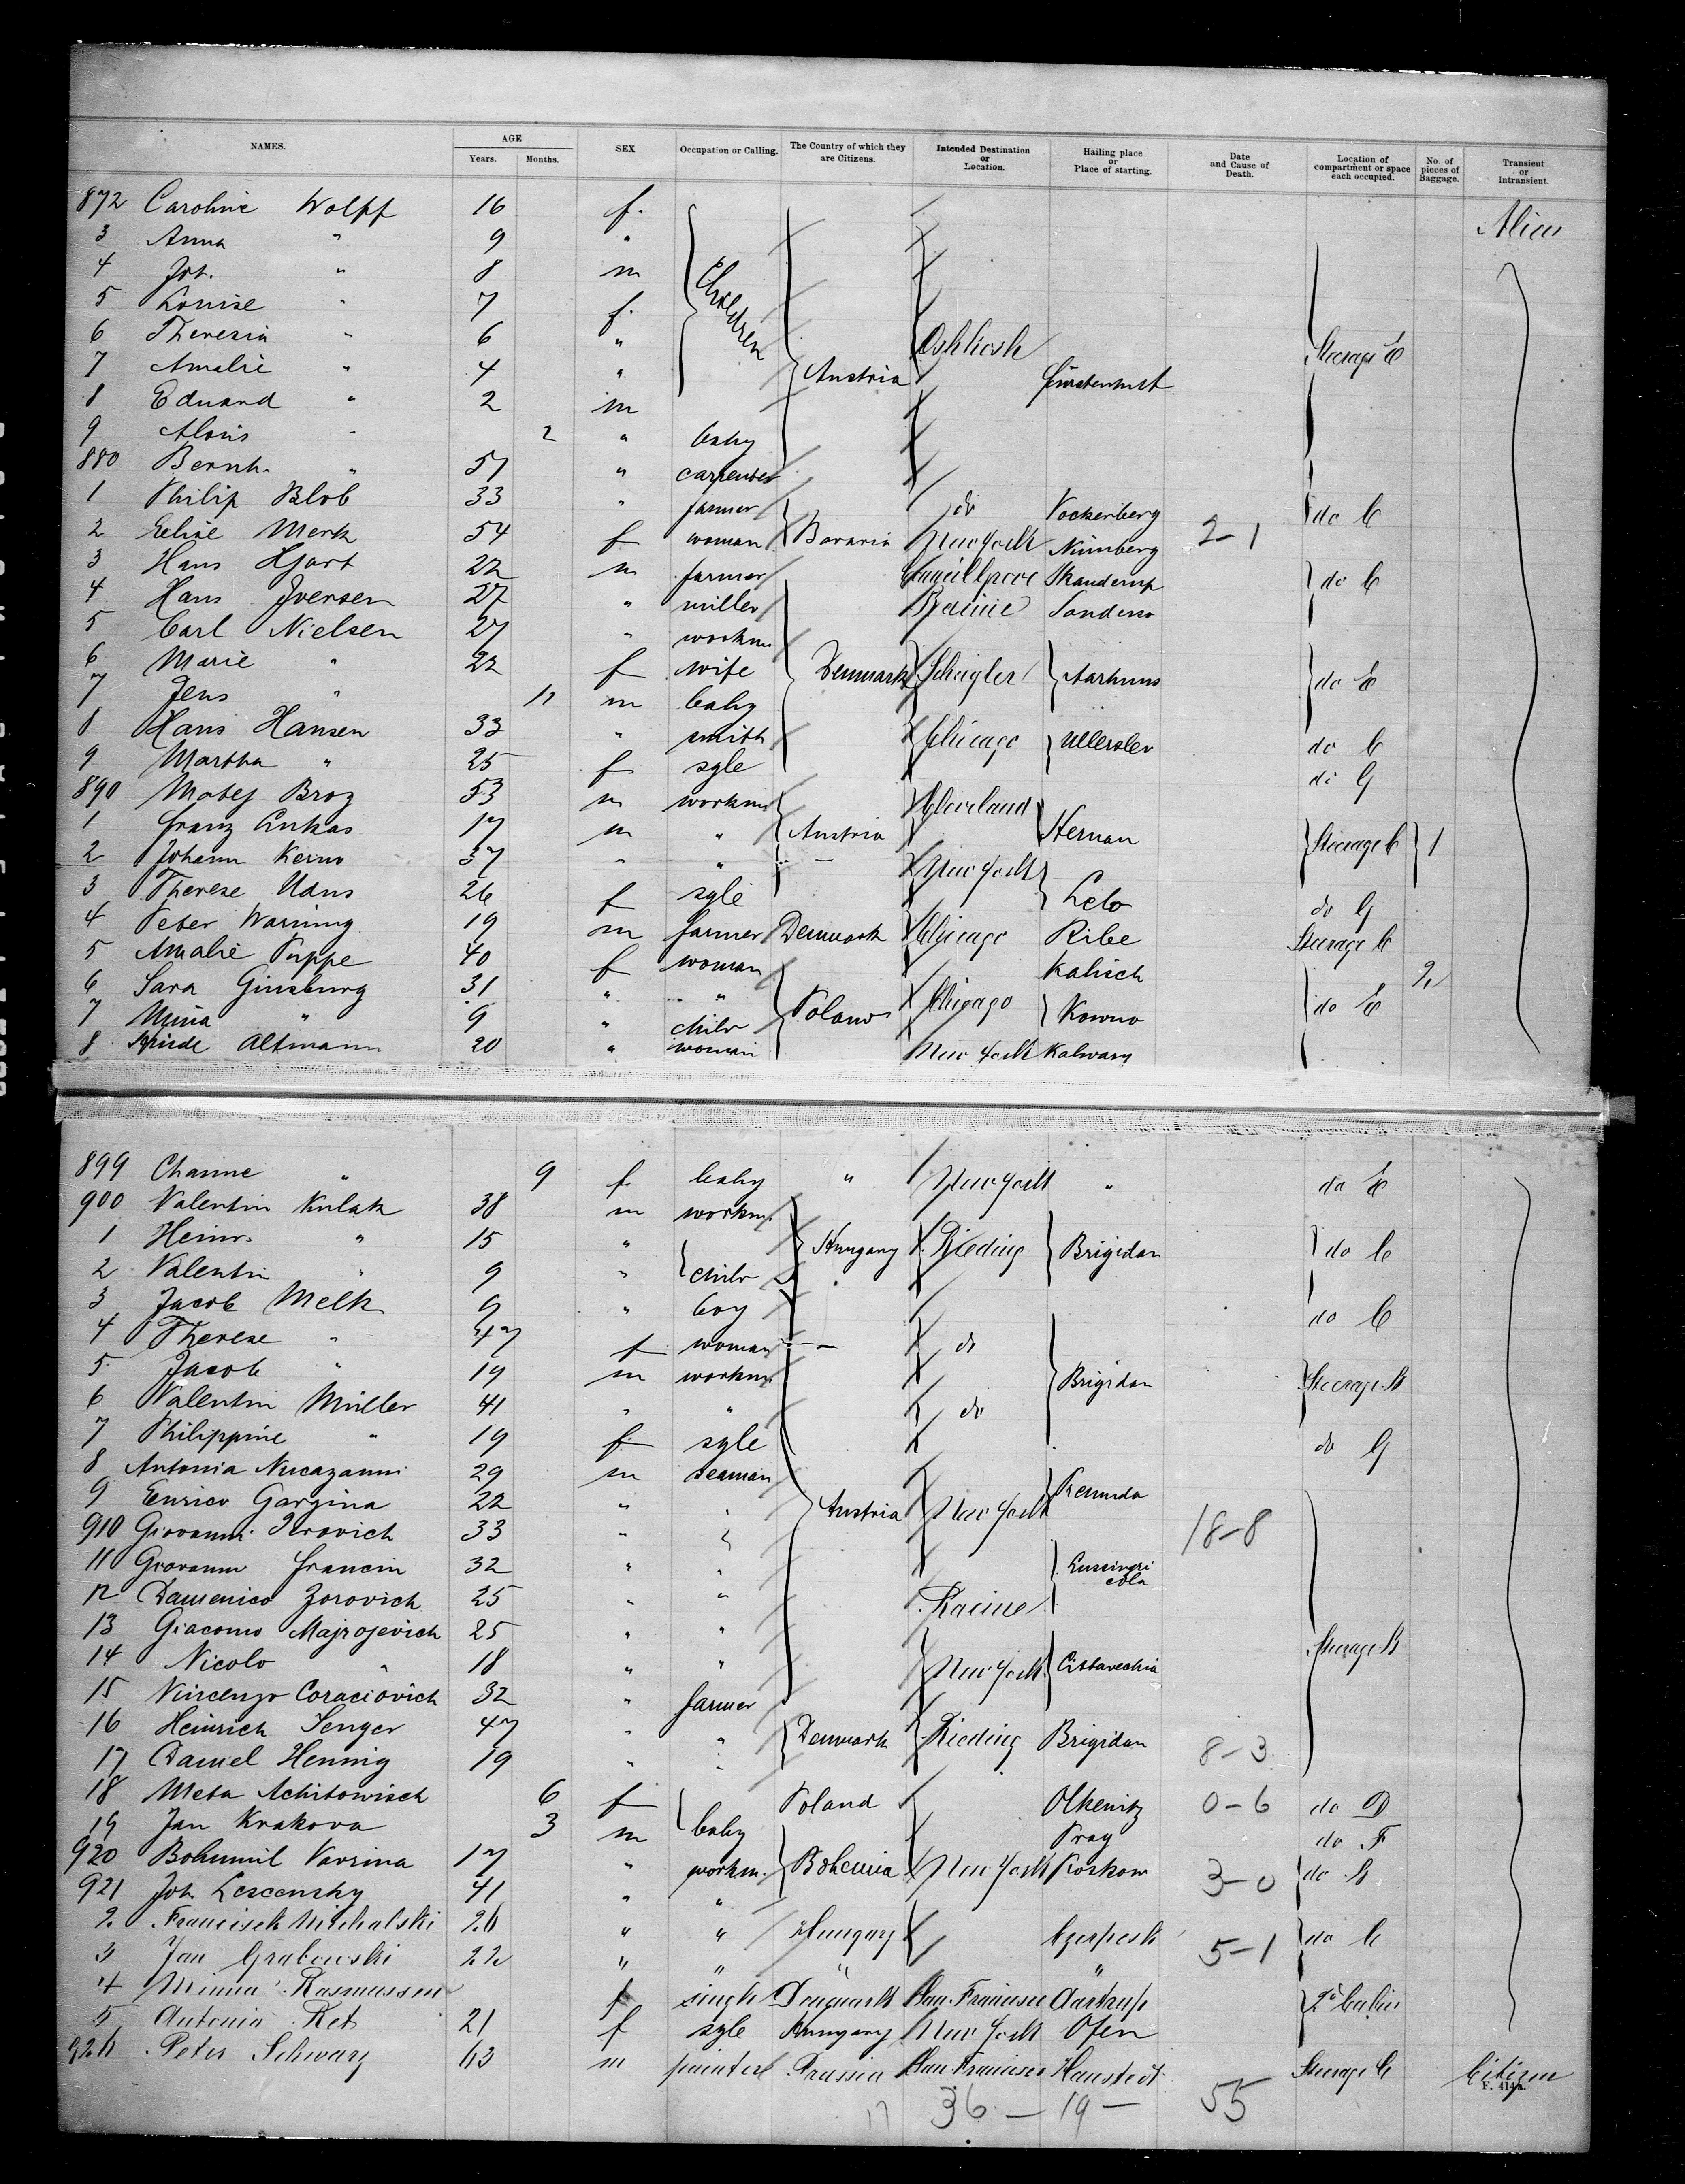 NAMES. AGE Years. Months. SEX Occupation or Calling. The Country of which they are Citizens. Intended Destination or Location. Hailing place or Place of starting. Date and Cause of Death. Location of compartment or space each occupied. No. of pieces of Baggage. Transient or Intransient.
872 Caroline Wolpf 16 f. Alien
3 Anna " 9 "
4 Joh. " 8 m Children
5 Louise " 7 f.
6 Theresia " 6 " Oshkosh Steerage E
7 Amalie " 4 " Austria
8 Eduard " 2 m
9 Alois " 2 " baby
880 Bernh. " 51 " carpenter
1 Philip Blob 33 " farmer do Vockerberg do C
2 Elise Merk 54 f woman Bavaria New York Nürnberg 2-1
3 Hans Hjort 22 m farmer Skanderup do C
4 Hans Iversen 27 " miller Racine
5 Carl Nielsen 27 " workm.
6 Marie " 22 f wife Denmark Aarhuus do E
7 Jens " 11 m baby
8 Hans Hansen 33 " smith Chicago Ullerslev do C
9 Martha " 25 f sgle do G
890 Matej Broz 53 m workm Cleveland
1 Franz Lukas 17 m " Austria Herman Steerage C 1
2 Johann Kerno 37 " " New York
3 Therese Udns 26 f sgle Lelo do G
4 Peter Warming 19 m farmer Denmark Chicago Ribe Steerage C
5 Amalie Puppe 40 f woman Kalisch
6 Sara Ginsburg 31 " " Poland Chicago Kowno do E 2
7 Mina " 9 " child
8 Altmann 20 " woman New York Kalwary
899 Channe " 9 f baby " New York " do E
900 Valentin Kulak 38 m workm
1 Heinr. " 15 " Hungary Rieding Brigidan do C
2 Valentin " 9 " child
3 Jacob Melk 9 " boy do C
4 Therese " 47 f woman do
5 Jacob " 19 m workm Brigidan Steerage B
6 Valentin Müller 41 " " do
7 Philippine " 19 f sgle do G
8 Antonia Nucazanni 29 m seaman
9 Enrico Gargina 22 " " Austria New York
910 Giovanni 33 " " 18-8
11 Giovanni Francin 32 " " Lussingri cola
12 Damenico Zorovich 25 " " Racine
13 Giacomo Majrojevich 25 " " Steerage B
14 Nicolo " 18 " " New York Cittavechia
15 Vincenzo Coraciovich 32 " farmer
16 Heinrich Senger 47 " " Denmark Rieding Brigidan
17 Daniel Hennig 19 " " 8-3
18 Meta Achitowisch 6 f Poland Olkenitz 0-6 do D
19 Jan Krakova 3 m baby Prag do F
920 Bohumil Varsina 17 " workm. Bohemia New York Koskow 3-0 do B
921 Joh. Lescensky 41 " "
2 Francisek Michalski 26 " " Hungary do C
3 Jan Grabowski 22 " " " " 5-1
4 Minna Rasmussen f single Denmark San Francisco Aastrup 2d Cabin
5 Antonia Ret 21 f sgle Hungary New York Ofen
926 Peter Schwarz 63 m painter Prussia San Francisco Hanstedt Steerage C Citizen
F. 414a.
17 36 - 19 - 55